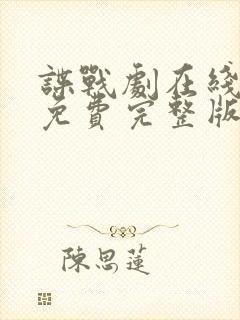 諜戰劇在綫
免費完整版
陳思蓮